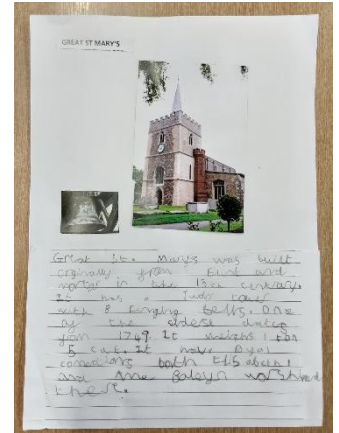 GREAT ST MARY'S
Great St. Mary's was built
orginally from flint and
mortar in the 13th century.
It has a Tudor tower
with 8 hanging bells. One
of the oldest dates
from 1749. It weighs 1 ton
5 cwt. It have Royal
conections both Elizabeth 1
and Ane Boleyn worshiped
there.